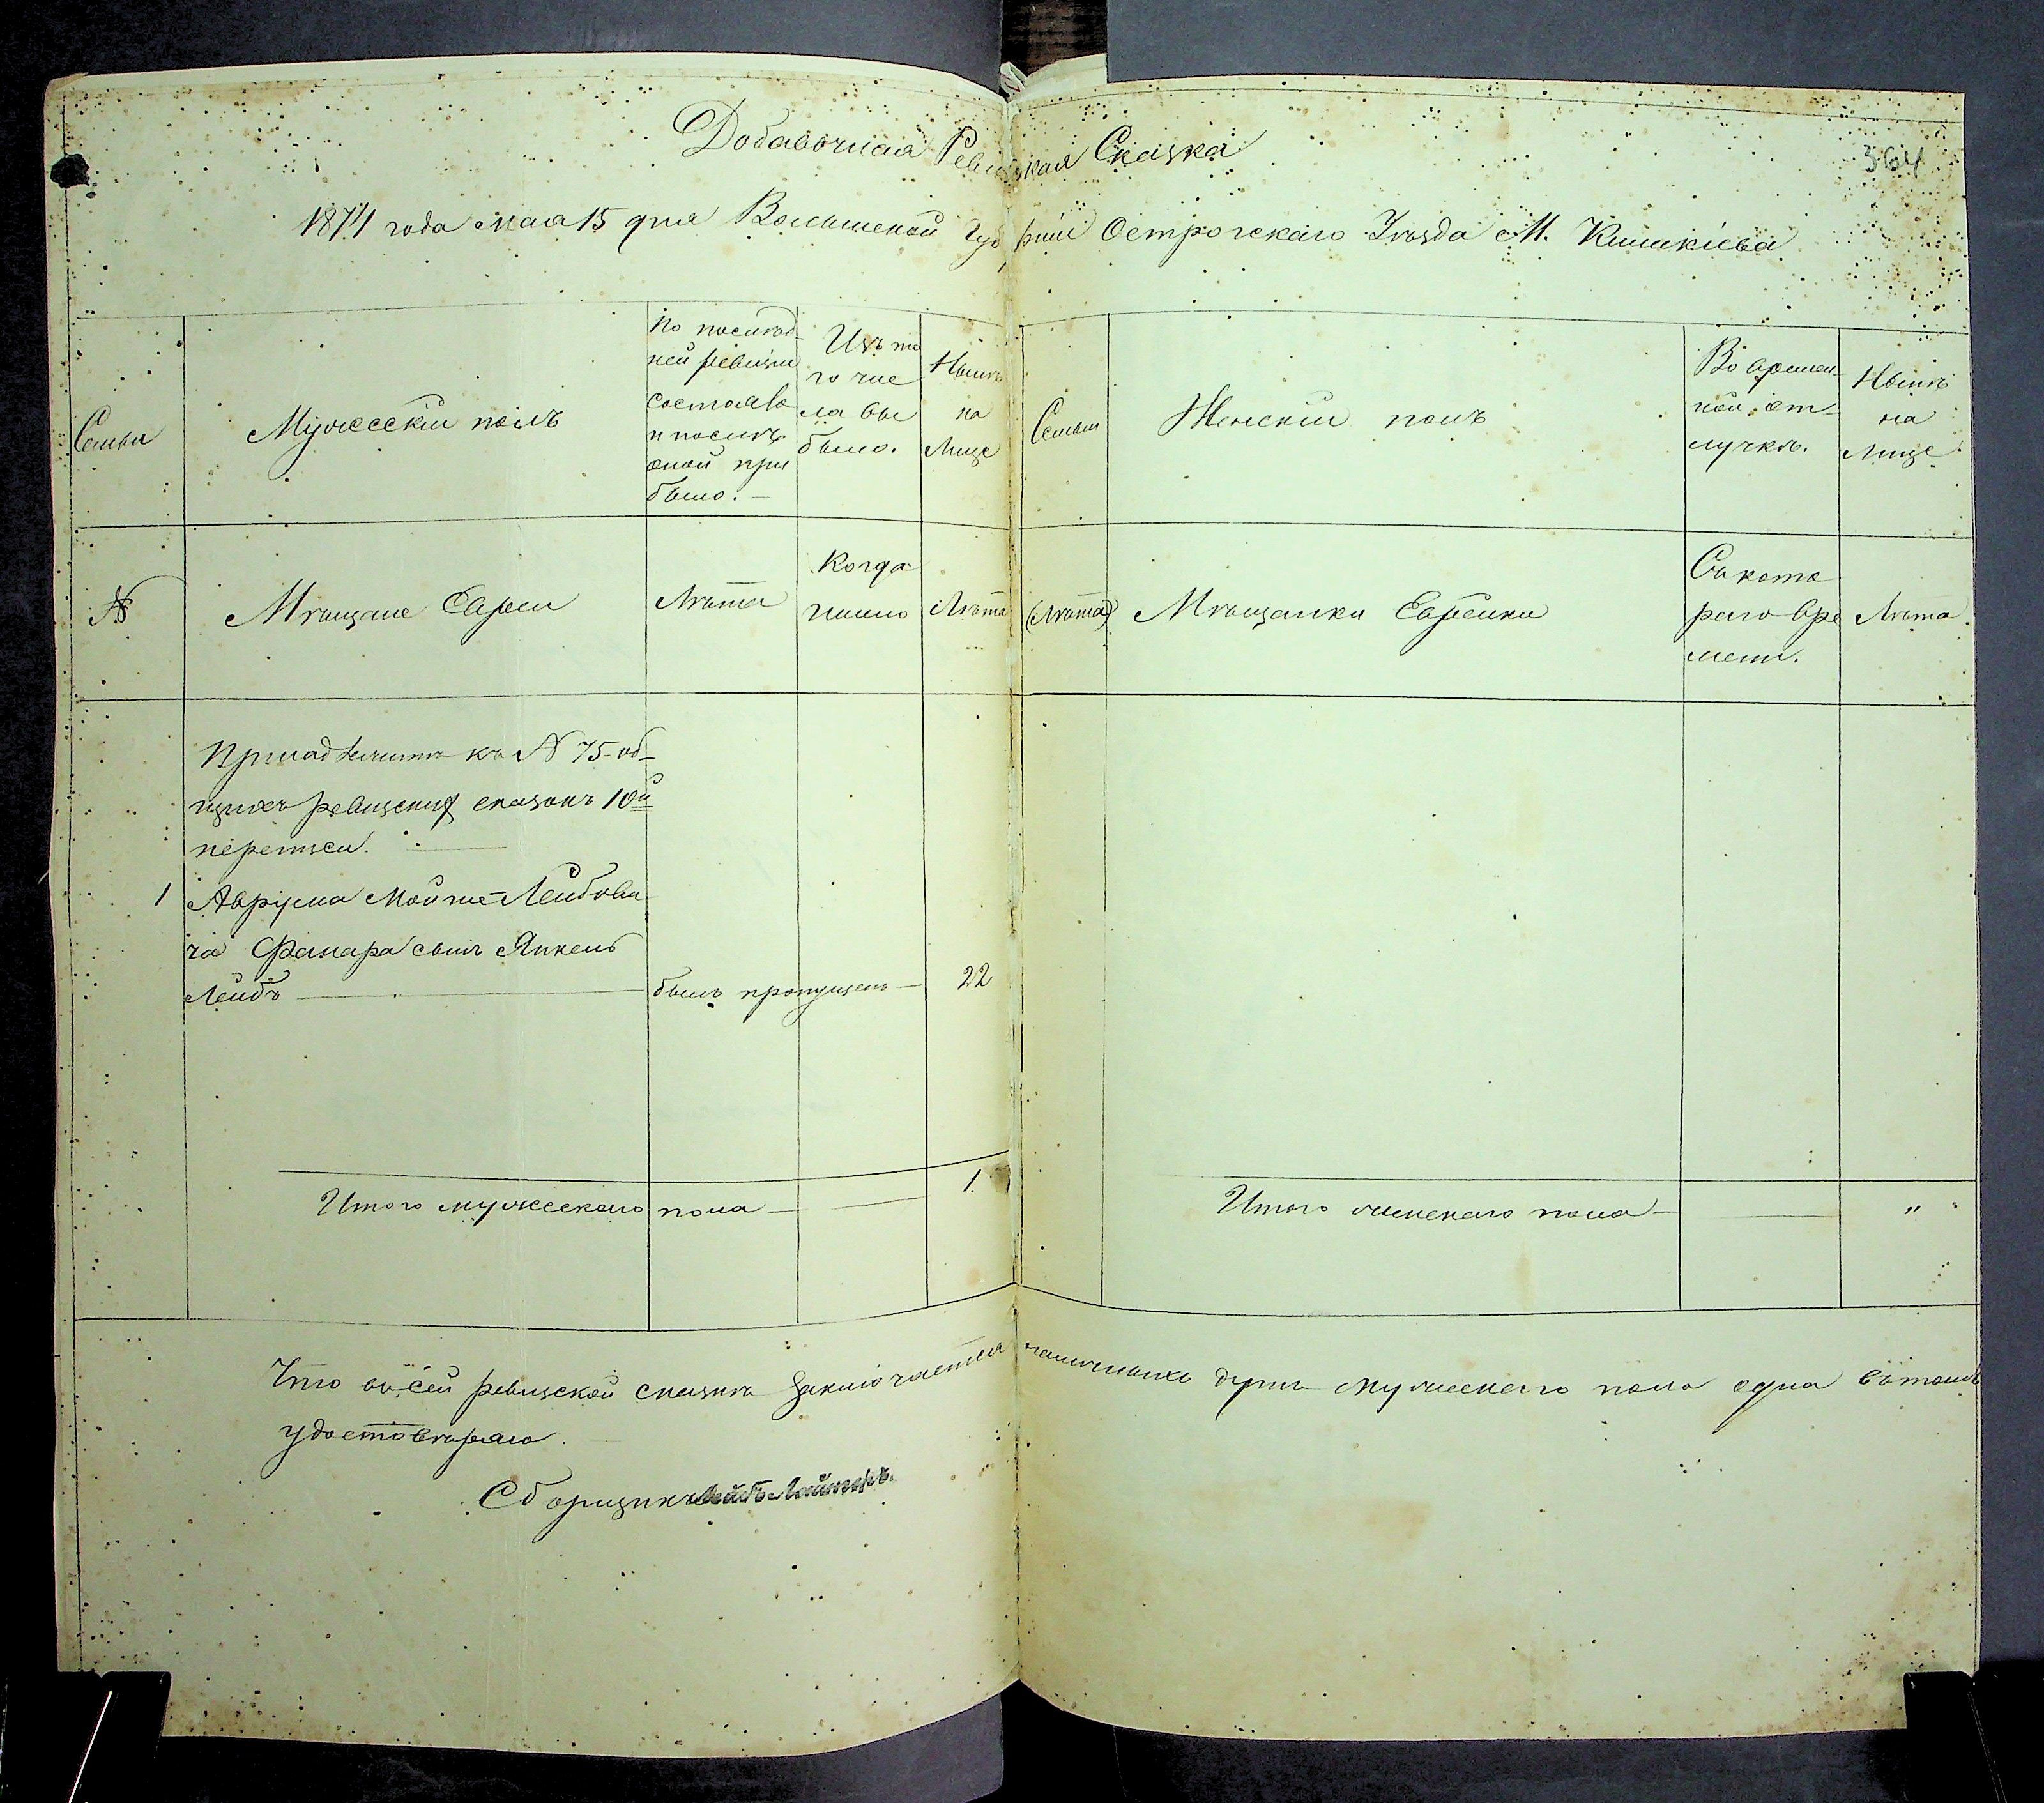 Добавочная Ревизская Сказка
364
1874 года мая 15 дня Волынской губерніи Острогскаго Уѣзда М. Кишкіева
Семьи
Мужескій полъ
По послѣд-
ней ревизіи
состояло
и послѣ
оной при
было.
Изъ то
го чис
ла вы
было.
Нынѣ
на
Лице
Семьи
Женскій полъ
Во времен-
ной от-
лучкѣ.
Нынѣ
на
Лице
№
Мѣщане Евреи
Лѣта
Когда
имено
Лѣта
(Лѣта)
Мѣщанки Еврейки
Съ кото
раго вре
мени.
Лѣта
Принадлежитъ къ № 75 об-
щихъ ревизских сказокъ 10й
переписи.
1 Аврума Мойше-Лейбови
ча Фанара сынъ Янкель
Лейбъ — былъ пропущенъ — 22
Итого мужескаго пола — 1.
Итого женскаго пола — "
Что въ сей ревизской сказкѣ заключается наличныхъ душъ мужескаго пола одна въ томъ
удостовѣряю.
Сборщикъ